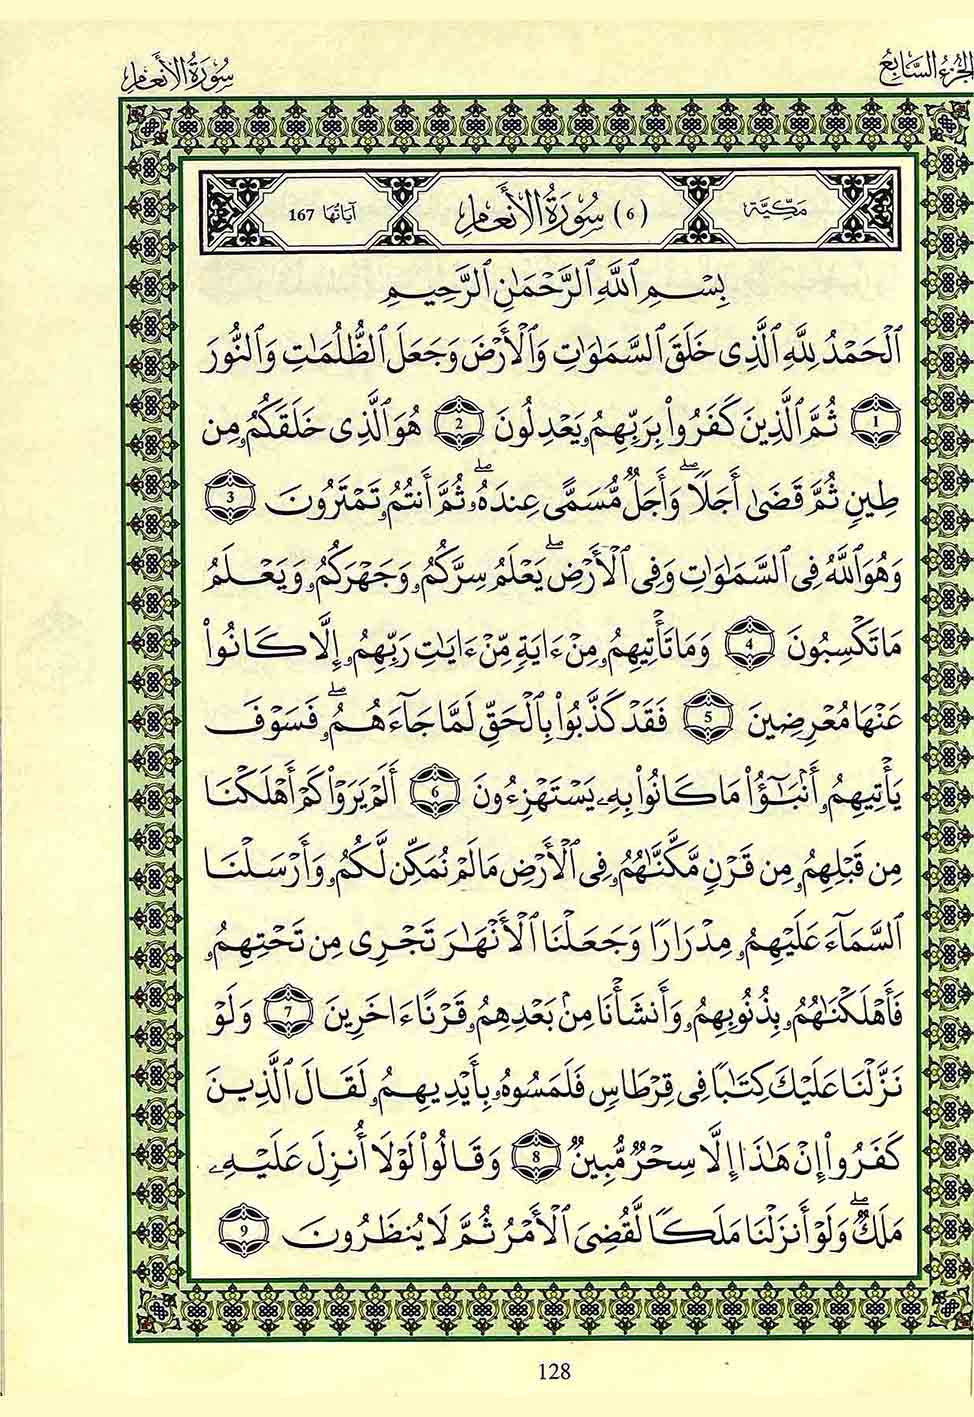 الجزء السابع
سُورَةُ الأَنْعَامِ
مَكِّيَّة (6) سُورَةُ الأَنْعَامِ آيَاتُهَا 167
بِسْمِ ٱللَّهِ ٱلرَّحْمَٰنِ ٱلرَّحِيمِ
ٱلْحَمْدُ لِلَّهِ ٱلَّذِى خَلَقَ ٱلسَّمَٰوَٰتِ وَٱلْأَرْضَ وَجَعَلَ ٱلظُّلُمَٰتِ وَٱلنُّورَ
1 ثُمَّ ٱلَّذِينَ كَفَرُوا۟ بِرَبِّهِمُۥ يَعْدِلُونَ 2 هُوَ ٱلَّذِى خَلَقَكُمُۥ مِن
طِينٍ ثُمَّ قَضَىٰٓ أَجَلًا ۖ وَأَجَلٌ مُّسَمًّى عِندَهُۥ ۖ ثُمَّ أَنتُمُۥ تَمْتَرُونَ 3
وَهُوَ ٱللَّهُ فِى ٱلسَّمَٰوَٰتِ وَفِى ٱلْأَرْضِ ۖ يَعْلَمُ سِرَّكُمُۥ وَجَهْرَكُمُۥ وَيَعْلَمُ
مَا تَكْسِبُونَ 4 وَمَا تَأْتِيهِمُۥ مِنْ ءَايَةٍ مِّنْ ءَايَٰتِ رَبِّهِمُۥ إِلَّا كَانُوا۟
عَنْهَا مُعْرِضِينَ 5 فَقَدْ كَذَّبُوا۟ بِٱلْحَقِّ لَمَّا جَآءَهُمُۥ ۖ فَسَوْفَ
يَأْتِيهِمُۥ أَنۢبَٰٓؤُا۟ مَا كَانُوا۟ بِهِۦ يَسْتَهْزِءُونَ 6 أَلَمْ يَرَوْا۟ كَمْ أَهْلَكْنَا
مِن قَبْلِهِمُۥ مِن قَرْنٍ مَّكَّنَّٰهُمُۥ فِى ٱلْأَرْضِ مَا لَمْ نُمَكِّن لَّكُمُۥ وَأَرْسَلْنَا
ٱلسَّمَآءَ عَلَيْهِمُۥ مِدْرَارًا وَجَعَلْنَا ٱلْأَنْهَٰرَ تَجْرِى مِن تَحْتِهِمُۥ
فَأَهْلَكْنَٰهُمُۥ بِذُنُوبِهِمُۥ وَأَنشَأْنَا مِنۢ بَعْدِهِمُۥ قَرْنًا ءَاخَرِينَ 7 وَلَوْ
نَزَّلْنَا عَلَيْكَ كِتَٰبًا فِى قِرْطَاسٍ فَلَمَسُوهُ بِأَيْدِيهِمُۥ لَقَالَ ٱلَّذِينَ
كَفَرُوٓا۟ إِنْ هَٰذَآ إِلَّا سِحْرٌ مُّبِينٌ 8 وَقَالُوا۟ لَوْلَآ أُنزِلَ عَلَيْهِۦ
مَلَكٌ ۖ وَلَوْ أَنزَلْنَا مَلَكًا لَّقُضِىَ ٱلْأَمْرُ ثُمَّ لَا يُنظَرُونَ 9
128